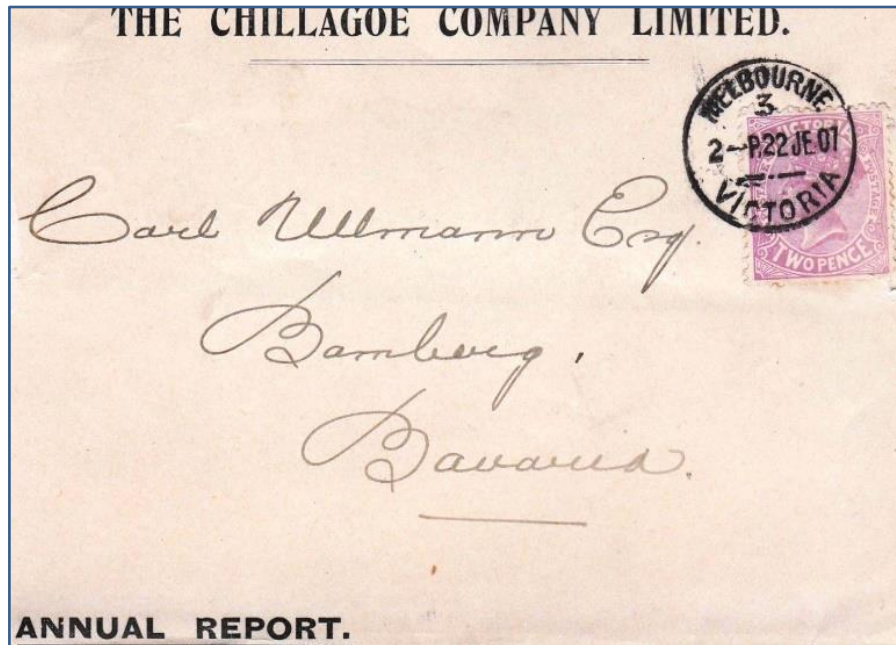 THE CHILLAGOE COMPANY LIMITED.
MELBOURNE
3
2-P.22 JE.07
VICTORIA
VICTORIA
POSTAGE
TWO PENCE
Carl Ullmann Esq.
Bamberg,
Bavaria.
ANNUAL REPORT.